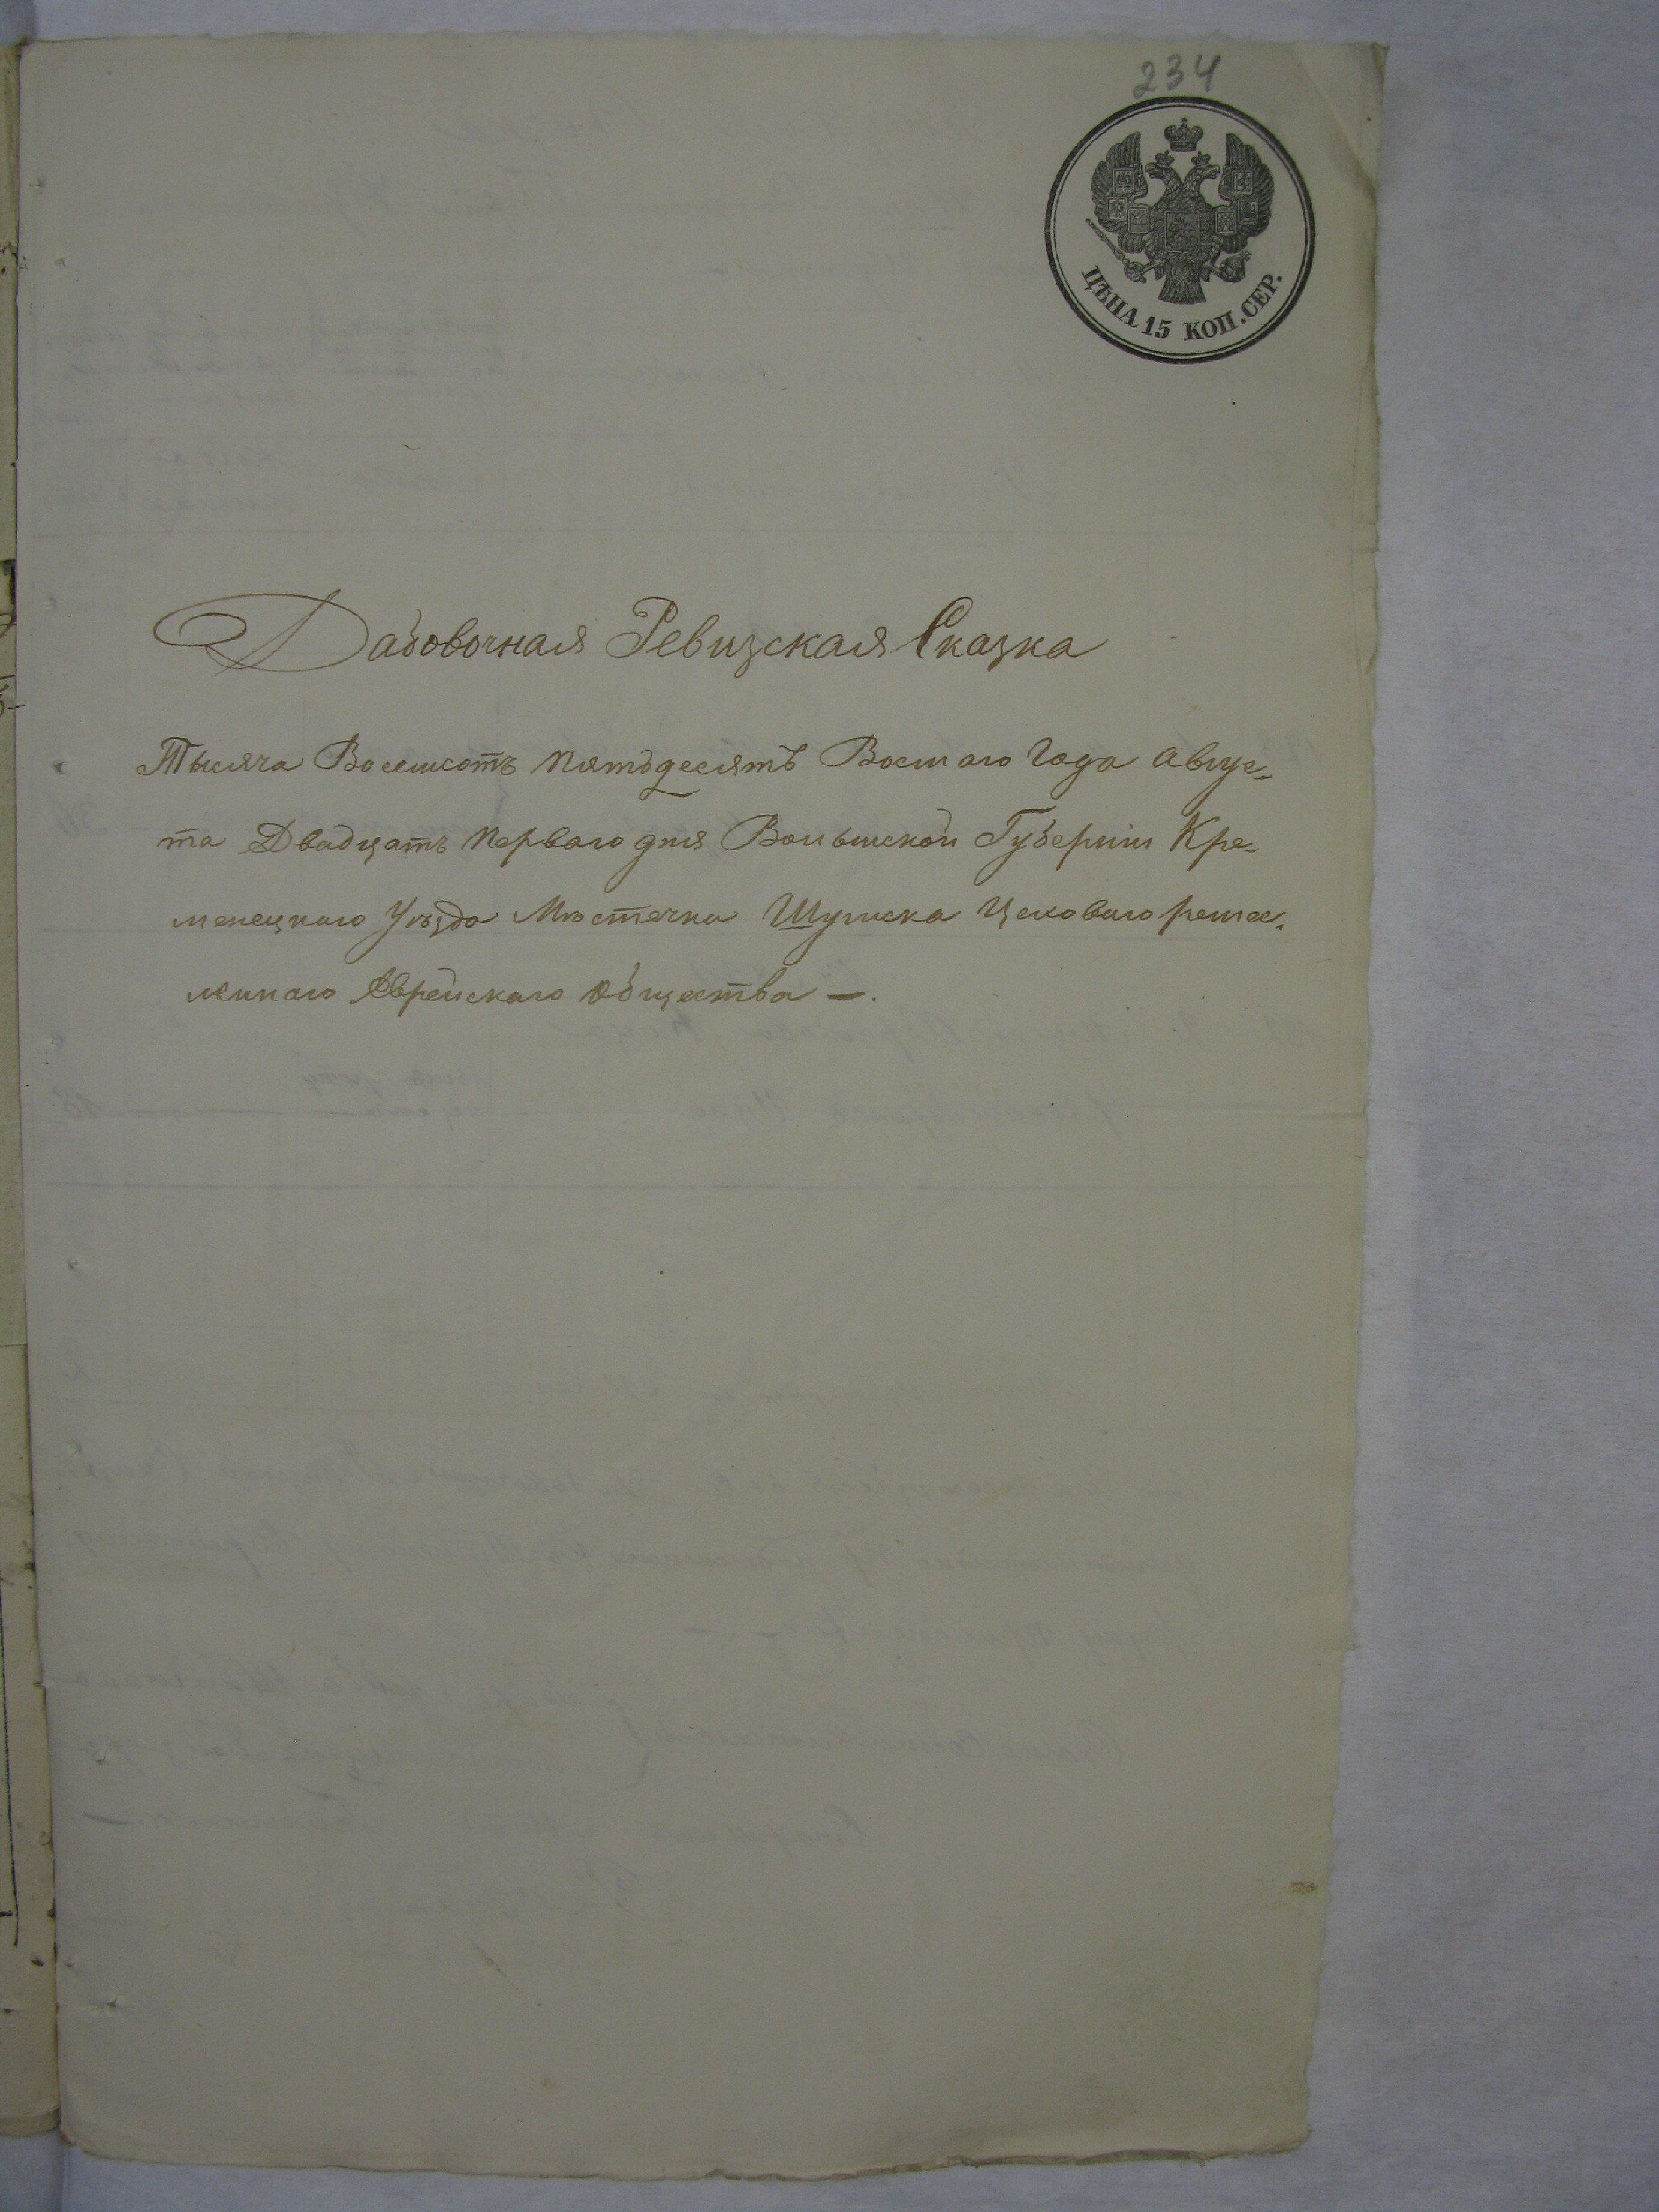 234
ЦѢНА 15 КОП. СЕР.
Дабовочная Ревизская Сказка
Тысяча Восемсотъ Пятьдесятъ Восмаго Года Авгус-
та Двадцать Перваго дня Волынской Губерніи Кре-
менецкаго Уѣзда Мѣстечка Шумска Цеховаго ремес-
леннаго Еврейскаго Общества —.